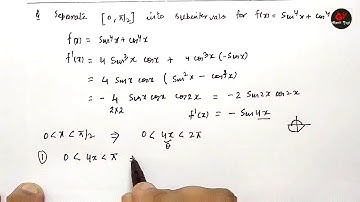 Q Separate [0, π/2] into subintervals for f(x) = Sin⁴x + cos⁴x
f(x) = Sin⁴x + cos⁴x
f'(x) = 4 Sin³x cosx + 4 cos³x (-Sinx)
= 4 Sinx cosx (Sin²x - cos²x)
= - 4 Sinx cosx cos2x = -2 Sin2x cos2x
2×2
f'(x) = - Sin4x
0<x<π/2 ⇒ 0 < 4x < 2π
θ
① 0 < 4x < π ⇒